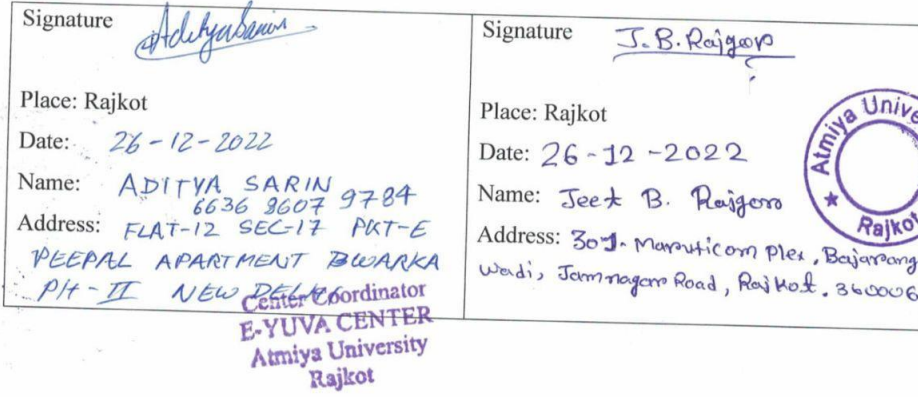 Signature AdityaSarin
Place: Rajkot
Date: 26-12-2022
Name: ADITYA SARIN
6636 8607 9784
Address: FLAT-12 SEC-17 PKT-E
PEEPAL APARTMENT DWARKA
PH-II NEW DELHI
Center Coordinator
E-YUVA CENTER
Atmiya University
Rajkot
Signature J.B.Rajgor
Place: Rajkot
Date: 26-12-2022
Name: Jeet B. Rajgor
Address: 301. Maruticom Plex, Bajarang
Wadi, Jamnagar Road, Rajkot. 360006
Atmiya Unive
★ Rajko